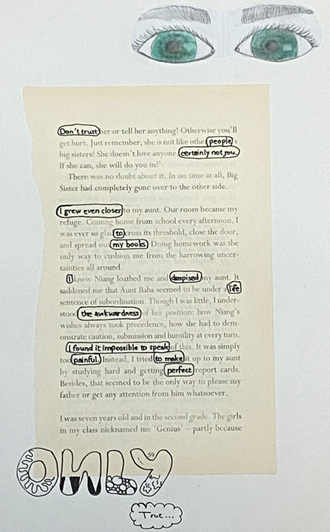 Don't trust her or tell her anything! Otherwise you'll
get hurt. Just remember, she is not like other people's
big sisters! She doesn't love anyone, certainly not you.
If she can, she will do you in!'
There was no doubt about it. In no time at all, Big
Sister had completely gone over to the other side.
I grew even closer to my aunt. Our room became my
refuge. Coming home from school every afternoon, I
was ever so glad to cross its threshold, close the door,
and spread out my books. Doing homework was the
only way to cushion me from the harrowing uncer-
tainties all around.
I knew Niang loathed me and despised my aunt. It
saddened me that Aunt Baba seemed to be under a life
sentence of subordination. Though I was little, I under-
stood the awkwardness of her position: how Niang's
wishes always took precedence, how she had to dem-
onstrate caution, submission and humility at every turn.
I found it impossible to speak of this. It was simply
too painful. Instead, I tried to make it up to my aunt
by studying hard and getting perfect report cards.
Besides, that seemed to be the only way to please my
father or get any attention from him whatsoever.
I was seven years old and in the second grade. The girls
in my class nicknamed me 'Genius' – partly because
ONLY
True...